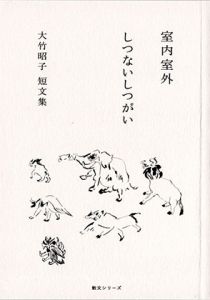 室内室外
しつないしつがい
大竹昭子 短文集
散文シリーズ